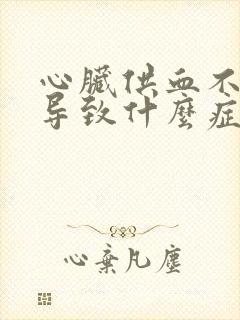 心臟供血不
导致什麼症
心棄凡塵